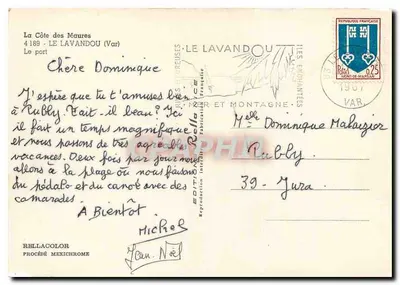 La Côte des Maures
4189 - LE LAVANDOU (Var)
Le port
Chère Dominique
J'espère que tu t'amuses bien
à Pubby. Fait-il beau? Ici
il fait un temps magnifique
et nous passons de très agréables
vacances. Deux fois par jour nous
allons à la plage où nous faisons
du pédalo et du canot avec des
camarades.
A Bientôt
Michel
Jean-Noël
RELLACOLOR
PROCÉDÉ MEXICHROME
LE LAVANDOU
MER ET MONTAGNE
REPUBLIQUE FRANÇAISE
0,25
MONT-DE-MARSAN
VAR
Melle Dominique
Pubby
39 - Jura